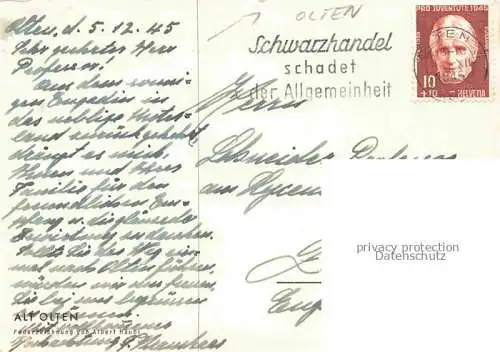 Olten, d. 5.12.45
Sehr geehrter Herr
Professor!
Aus dem sonni-
gen Engadin in
das neblige Unter-
land zurückgekehrt
drängt es mich,
Ihnen und Ihrer
Familie für den
freundlichen Em-
pfang u. die glänzende
Bewirtung zu danken.
Sollte Sie der Weg ein-
mal nach Olten führen,
würden wir uns freuen,
Sie bei uns begrüssen
ALT OLTEN
Federzeichnung von Albert Häubi
OLTEN
Schwarzhandel
schadet
der Allgemeinheit
PRO JUVENTUTE 1945
OLTEN
10
+10
HELVETIA
Herrn
Schneider Professor
am Lyceum
privacy protection
Datenschutz